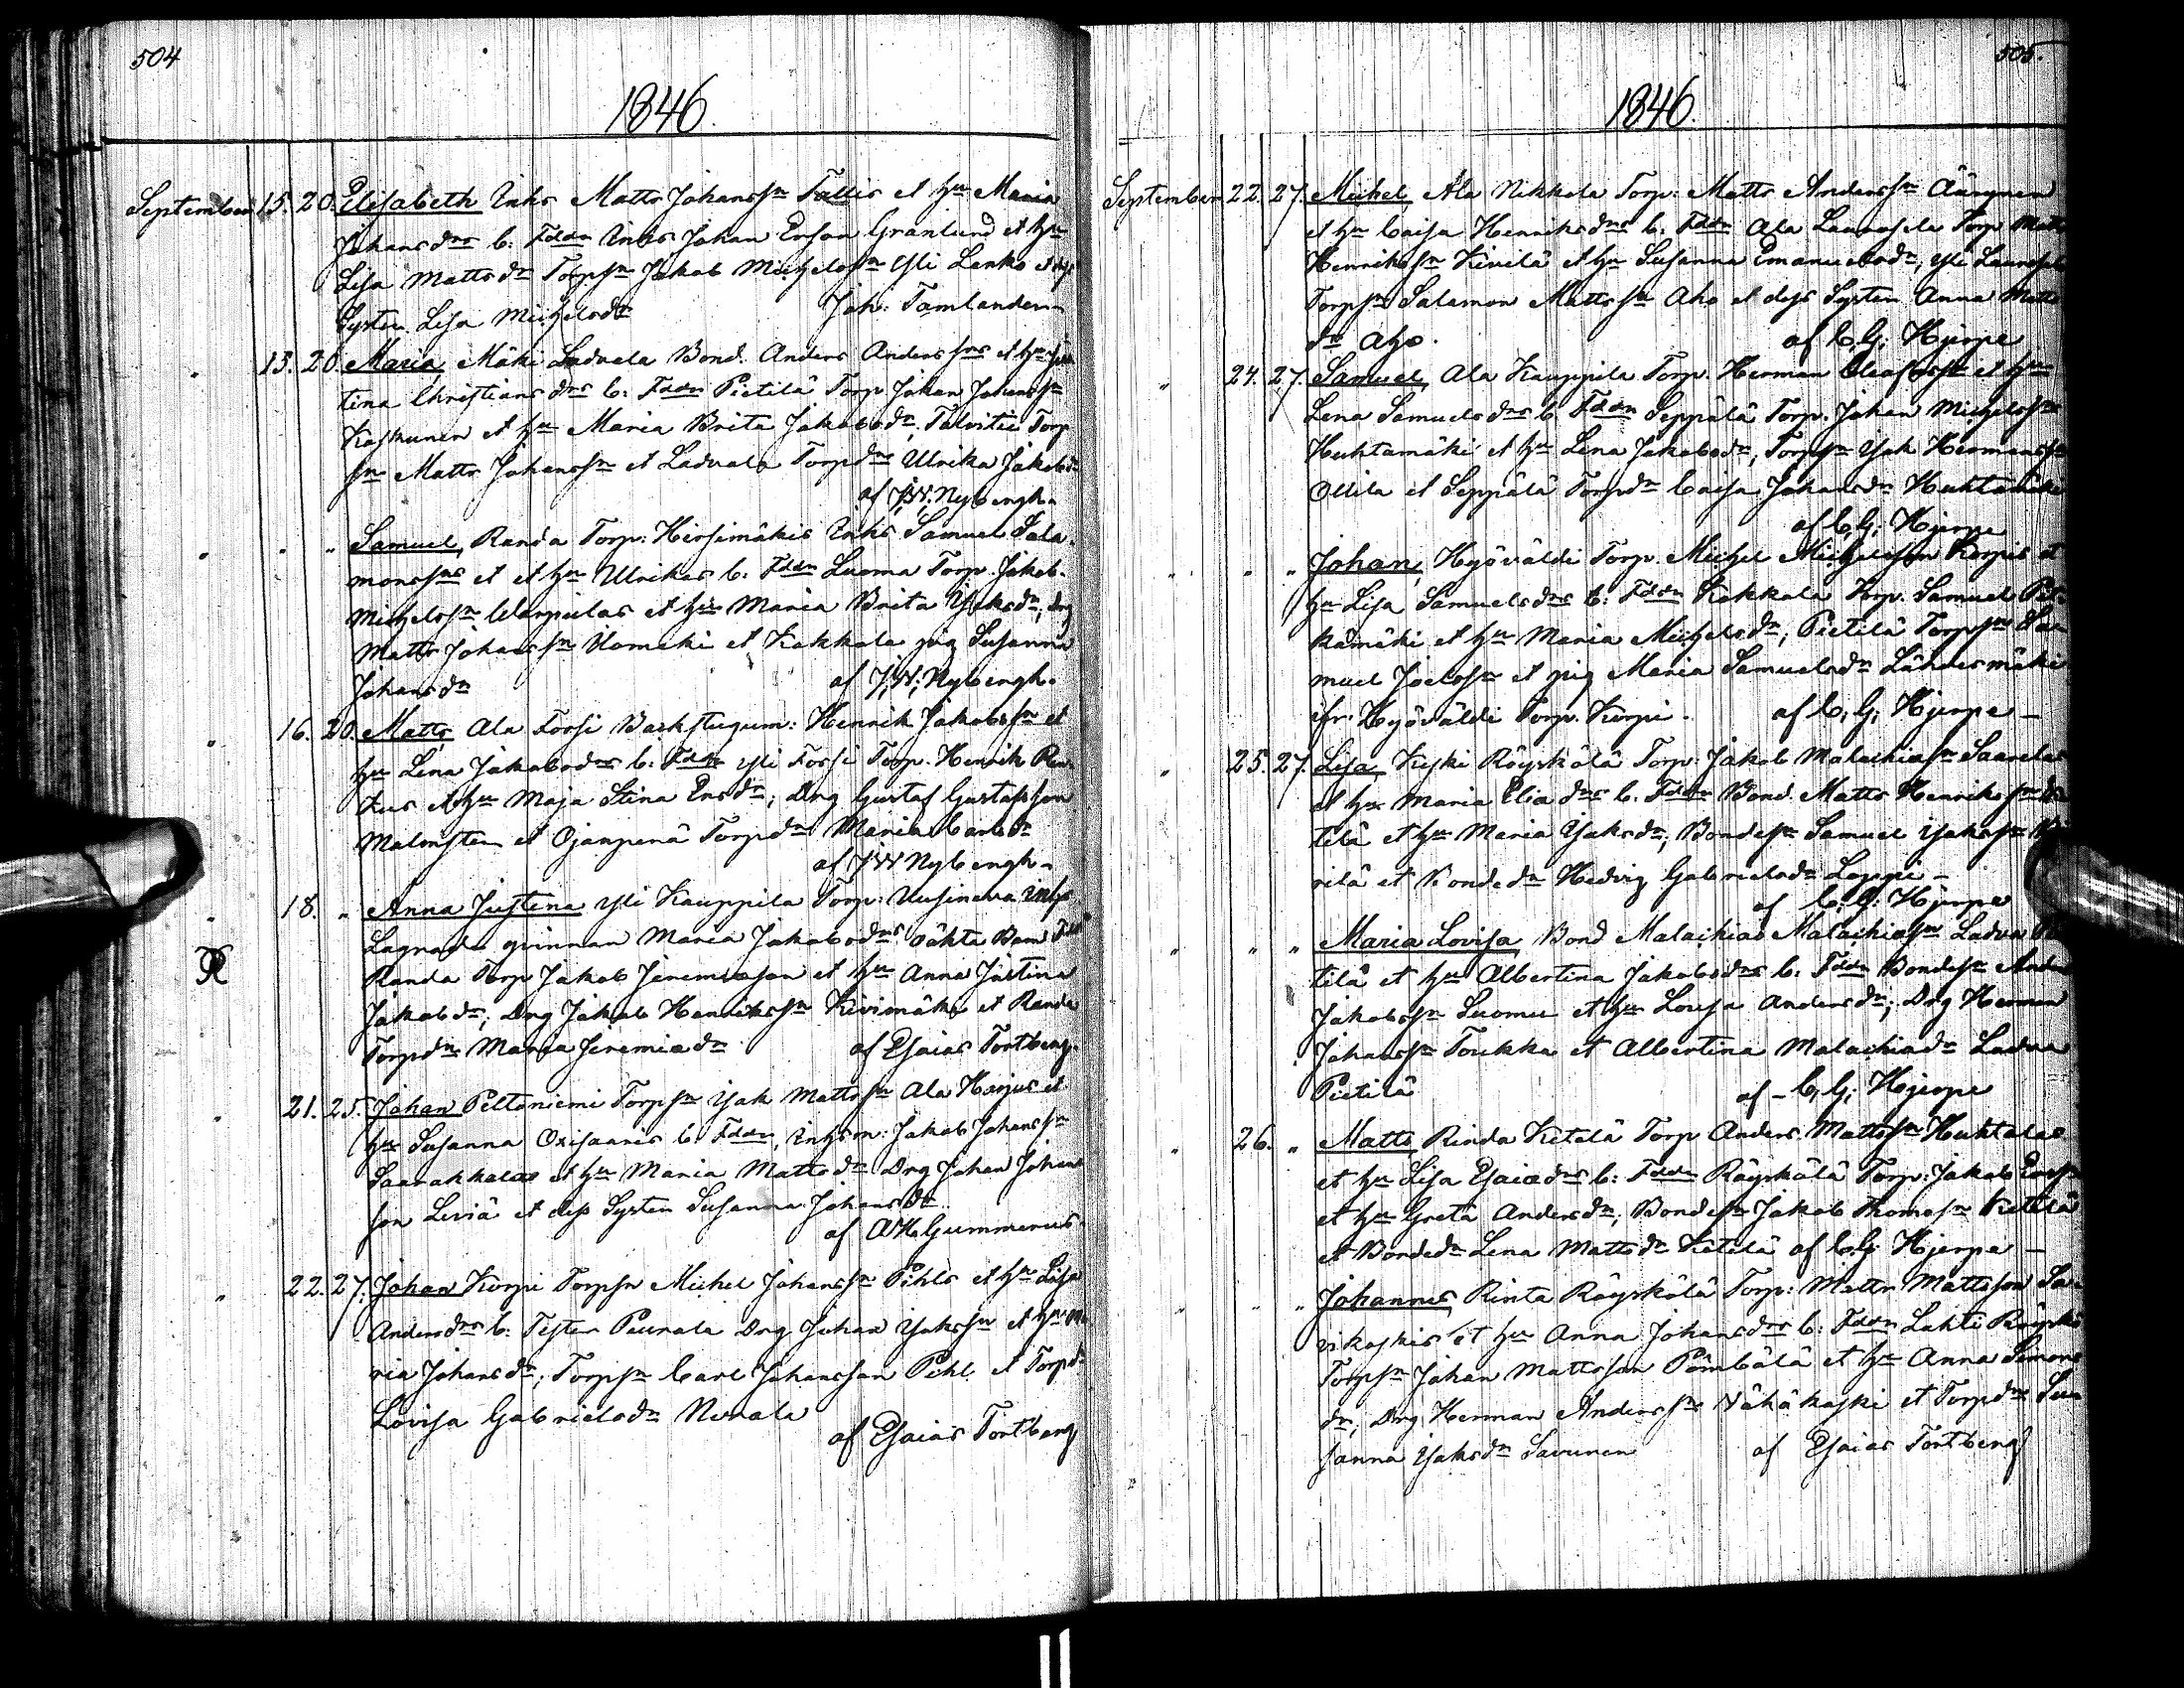 504
1846.
September 15. 20. Elisabeth Inhs Matts Johanssn Tallis et hu Maria
Johansdrs b: Fddr Inhs Johan Ersson Granlund et hu
Lisa Mattsdr Torpsn Jakob Michelssn Yli Lanko et dess
Syster Lisa Michelsdr Joh: Tamlander
" 15. 20. Maria, Mäki Ladvala Bond. Anders Anderssns et hu
tina Christiansdrs b: Fddr Pietilä Torp. Johan Johanssn
Koskunen et hu Maria Brita Jakobsdr, Talvitie Torp
sn Matts Johanssn et Ladvala Torpdr Ulrika Jakobsdr
af J:W: Nybergh.
" " " Samuel, Randa Torp: Hirsimäkis Inhs Samuel Salo-
monssns et et hu Ulrikas b: Fddr Luoma Torp. Jakob
Michelssn Warpulas et hu Maria Brita Isaksdr, drg
Matts Johanssn Uomäki et Kokkola pig Susanna
Johansdr af J:W: Nybergh.
" 16. 20. Matts Ala Forsi Backstugum: Henrik Jakobssn et
hu Lena Jakobsdrs b: Fddr Yli Forsi Torp. Henrik Ren-
kus et hu Maja Stina Ersdr; Drg Gustaf Gustafsson
Malmsten et Ojanperä Torpdr Maria Carlsdr
af J:W Nybergh.
" 18. " Anna Justina Yli Kauppila Torp: Uusineva Inhs
Lägrade qvinnan Maria Jakobsdrs oäkta Barn Fddr
Randa Torp Jakob Jeremiasson et hu Anna Justina
Jakobsdr, Drg Jakob Henrikssn Kivimäki et Randa
Torpdr Maria Jeremiadr af Esaias Tortberg.
" 21. 25. Johan Peltoniemi Torpsn Isak Mattssn Ala Harjus et
hu Susanna Oxisaaris b Fddr, Inhsm: Jakob Johanssn
Saarakkalas et hu Maria Mattsdr Drg Johan Johans
son Leviä et dess Syster Susanna Johansdr
af AH Gummerus.
" 22. 27. Johan Korpi Torpsn Michel Johanssn Pihls et hu Lisa
Andersdrs b: Testes Peurala Drg Johan Isakssn et hu Ma
ria Johansdr; Torpsn Carl Johansson Pihl et Torpdr
Lovisa Gabrielsdr Nerala
af Esaias Tortberg
505.
1846.
September 22. 27. Michel, Ala Nikkola Torp: Matts Anderssn Äärynen
et hu Caisa Henriksdrs b. Fddr Ala Laurosela Torp Matts
Henrikssn Kivilä et hu Susanna Emanuelsdr, Yli Laurosela
Torpsn Salomon Mattssn Aho et dess Syster Anna Matts
dr Aho. af C.G. Hjerpe
" 24. 27. Samuel, Ala Kauppila Torp. Herman Olofssn et hu
Lena Samuelsdrs b. Fddr Seppälä Torp. Johan Michelssn
Huhtamäki et hu Lena Jakobsdr, Torpsn Isak Hermanssn
Ollila et Seppälä Torpdr Caisa Johansdr Huhtamäki
af C.G: Hjerpe
" " " Johan, Hyöväldi Torp. Michel Michelsson Korpis et
hu Lisa Samuelsdrs b: Fddr Kokkola Torp. Samuel Pit-
kämäki et hu Maria Michelsdr; Pietilä Torpsn Sa-
muel Joelssn et pig Maria Samuelsdr Lähdesmäki
ifr. Hyöväldi Torp. Korpi. af C.G: Hjerpe
" 25. 27. Lisa, Koski Röyskölä Torp: Jakob Malachiassn Saarelas
et hu Maria Eliadrs b. Fddr Bond. Matts Henrikssn
tilä et hu Maria Isaksdr; Bondesn Samuel Isakssn
rilä et Bondedr Hedvig Gabrielsdr Loppi
af C.G: Hjerpe
" " " Maria Lovisa, Bond Malachias Malachiassn Ladva
tilä et hu Albertina Jakobsdrs b: Fddr Bondesn Anders
Jakobssn Luomu et hu Lovisa Andersdr; Drg Herman
Johanssn Toukka et Albertina Malachiadr Ladva
Pietilä af C,G; Hjerpe
" 26. " Matts, Rinda Ketelä Torp Anders Mattssn Huhtalas
et hu Lisa Esaiadrs b: Fddr Röyskölä Torp: Jakob Erssn
et hu Greta Andersdr; Bondesn Jakob Thomassn Ketelä
et Bondedr Lena Mattsdr Ketelä af C.G: Hjerpe
" " " Johannes, Rinta Röyskölä Torp: Matts Mattsson Sa-
vikoskis et hu Anna Johansdrs b: Fddr Lahti Röyskö
Torpsn Johan Mattsson Pömbälä et hu Anna Simons
dr, Drg Herman Anderssn Vähäkoski et Torpdr Su-
sanna Isaksdr Savunen af Esaias Tortberg